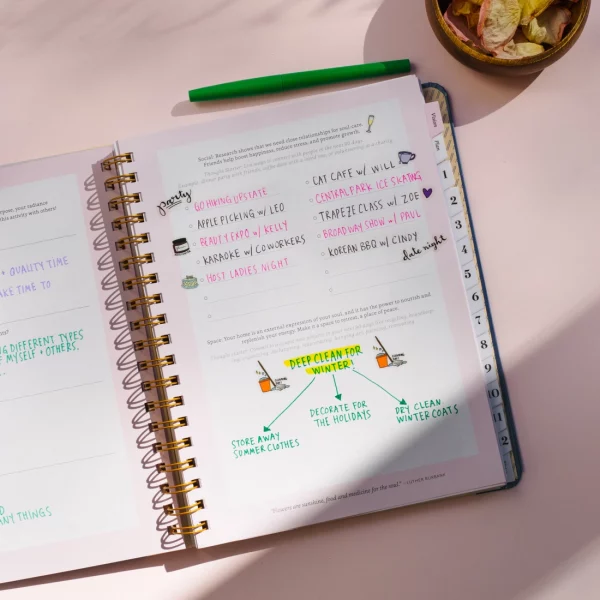 pose, your radiance
this activity with others!
• QUALITY TIME
AKE TIME TO
NG DIFFERENT TYPES
F MYSELF + OTHERS.
ANY THINGS
Social: Research shows that we need close relationships for soul care.
Friends help boost happiness, reduce stress, and promote growth.
party
GO HIKING UPSTATE
APPLE PICKING w/ LEO
BEAUTY EXPO w/ KELLY
KARAOKE w/ COWORKERS
HOST LADIES NIGHT
CAT CAFE w/ WILL
CENTRAL PARK ICE SKATING
TRAPEZE CLASS w/ ZOE
BROADWAY SHOW w/ PAUL
KOREAN BBQ w/ CINDY
date night
Space: Your home is an external expression of your soul, and it has the power to nourish and
replenish your energy. Make it a space to retreat, a place of peace.
DEEP CLEAN FOR
WINTER!
STORE AWAY
SUMMER CLOTHES
DECORATE FOR
THE HOLIDAYS
DRY CLEAN
WINTER COATS
"Flowers are sunshine, food and medicine for the soul." - LUTHER BURBANK
Vision
Plan
1
2
3
4
5
6
7
8
9
10
11
2